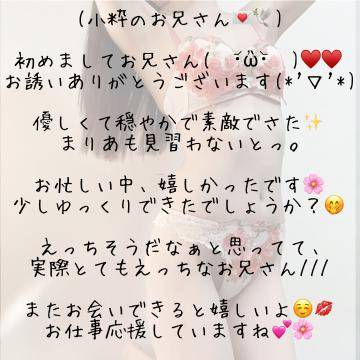 (小粋のお兄さん💌🕊️ )
初めましてお兄さん( ˙꒳​˙ )♥️♥️
お誘いありがとうございます(*'▽'*)
優しくて穏やかで素敵でさた✨
まりあも見習わないとっ。
お忙しい中、嬉しかったです🌸
少しゆっくりできたでしょうか？🤭
えっちそうだなぁと思ってて、
実際とてもえっちなお兄さん///
またお会いできると嬉しいよ☺️💋
お仕事応援していますね💕🌸